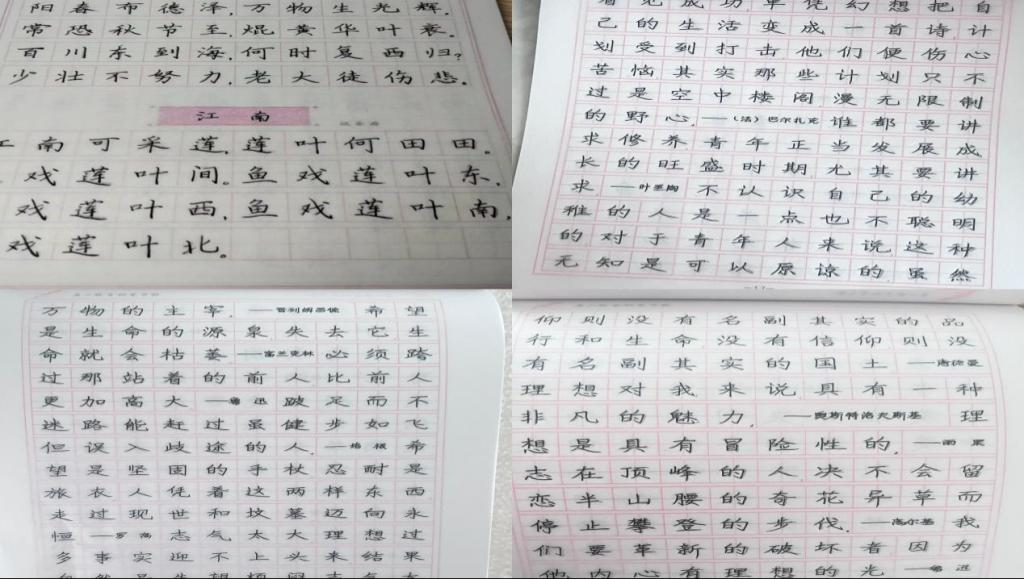 阳春布德泽,万物生光辉,
常恐秋节至,焜黄华叶衰。
百川东到海,何时复西归?
少壮不努力,老大徒伤悲。
江南
江南可采莲,莲叶何田田。
戏莲叶间。鱼戏莲叶东,
戏莲叶西,鱼戏莲叶南,
戏莲叶北。
看见成功单凭幻想把自
己的生活变成一首诗,计
划受到打击他们便伤心
苦恼其实那些计划只不
过是空中楼阁漫无限制
的野心,——(法)巴尔扎克 谁都要讲
求修养青年正当发展成
长的旺盛时期,尤其要讲
求——叶圣陶 不认识自己的幼
稚的人是一点也不聪明
的对于青年人来说这种
无知是可以原谅的,虽然
万物的主宰,—— 希望
是生命的源泉失去它生
命就会枯萎——富兰克林 必须踏
过那站着的前人比前人
更加高大——鲁迅 跛足而不
迷路能赶过虽健步如飞
但误入歧途的人,——培根 希
望是坚固的手杖忍耐是
旅衣人凭着这两样东西
走过现世和坟墓迈向永
恒——罗高 志气太大理想过
多事实迎不上头来结果
自然是失望烦闷志气太
仰则没有名副其实的品
行和生命没有信仰则没
有名副其实的国土——惠特曼
理想对我来说具有一种
非凡的魅力,——奥斯特洛夫斯基 理
想是具有冒险性的,——雨果
志在顶峰的人决不会留
恋半山腰的奇花异草而
停止攀登的步伐,——高尔基 我
们要革新的破坏者因为
他内心有理想的光——鲁迅